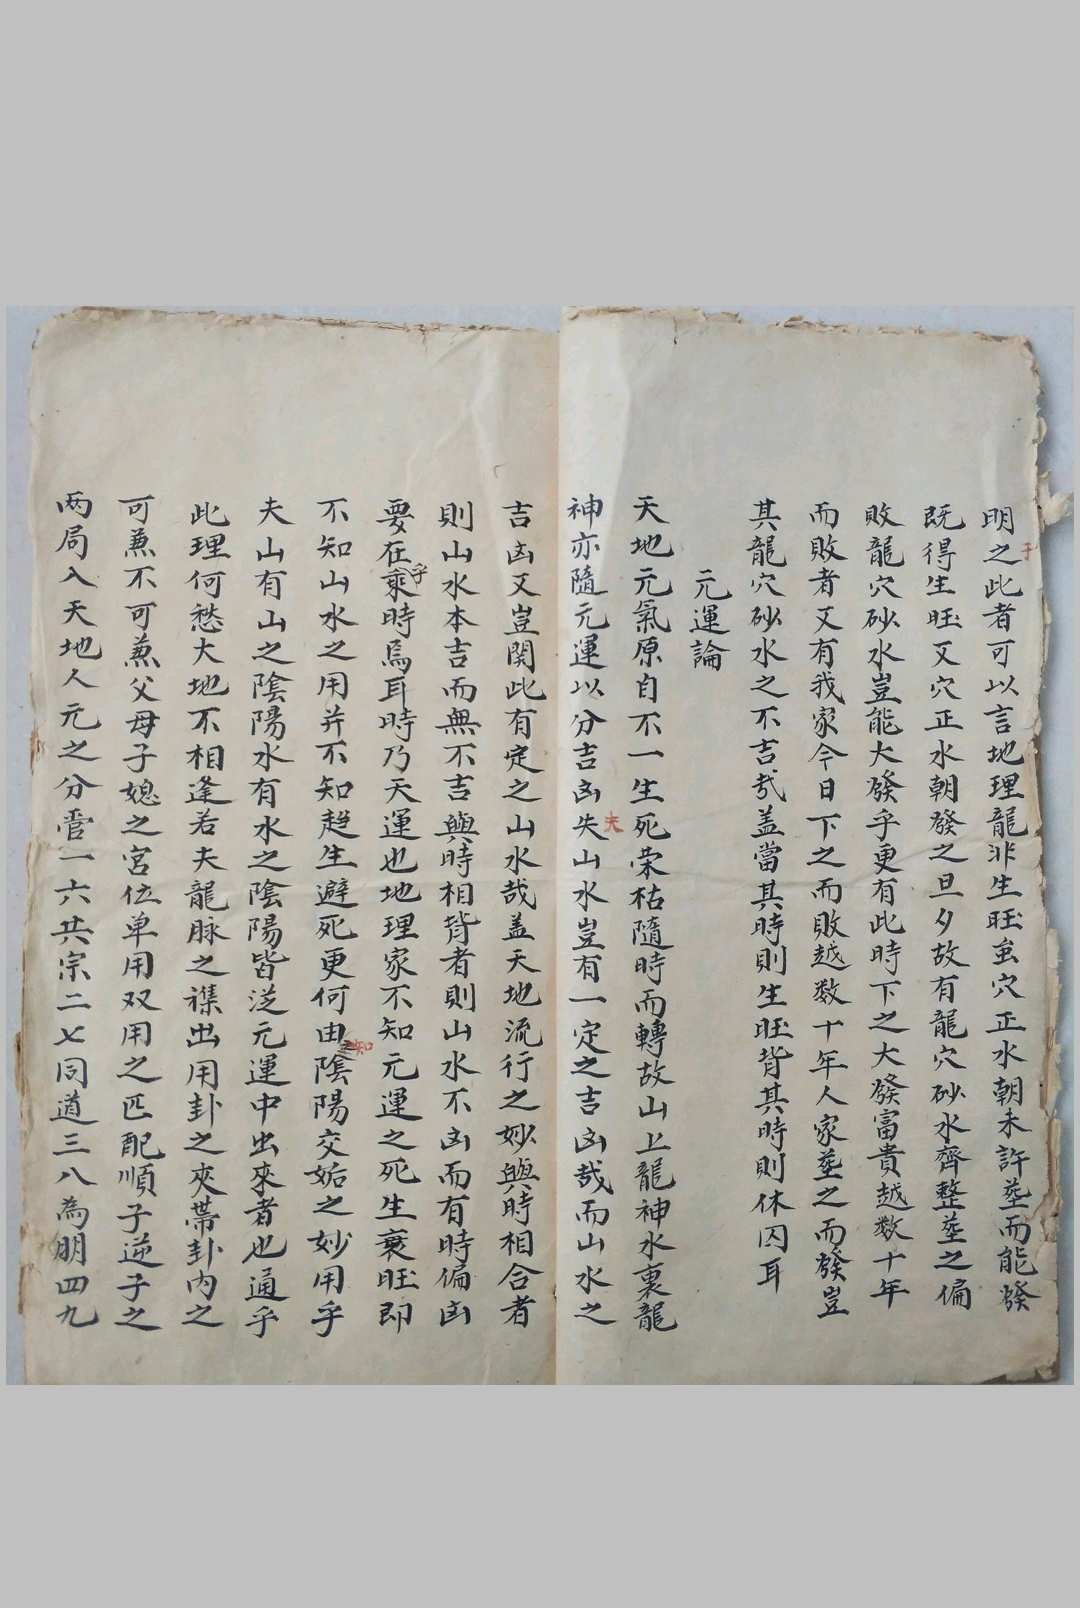 明之此者可以言地理龍非生旺虽穴正水朝未許塟而能發
既得生旺又穴正水朝發之旦夕故有龍穴砂水齊整塟之偏
敗龍穴砂水豈能大發乎更有此時下之大發富貴越数十年
而敗者又有我家今日下之而敗越数十年人家塟之而發豈
其龍穴砂水之不吉㢤盖當其時則生旺背其時則休囚耳
元運論
天地元氣原自不一生死荣枯隨時而轉故山上龍神水裏龍
神亦隨元運以分吉凶失夫山水豈有一定之吉凶哉而山水之
吉凶又豈関此有定之山水哉盖天地流行之妙與時相合者
則山水本吉而無不吉與時相背者則山水不凶而有時偏凶
要在乎乘時焉耳時乃天運也地理家不知元運之死生衰旺即
不知山水之用并不知趋生避死更何由知陰陽交姤之妙用乎
夫山有山之陰陽水有水之陰陽皆泛元運中出來者也通乎
此理何愁大地不相逢若夫龍脉之襍出用卦之夾帶卦内之
可兼不可兼父母子媳之宮位单用双用之匹配順子逆子之
两局入天地人元之分管一六共宗二七同道三八為朋四九